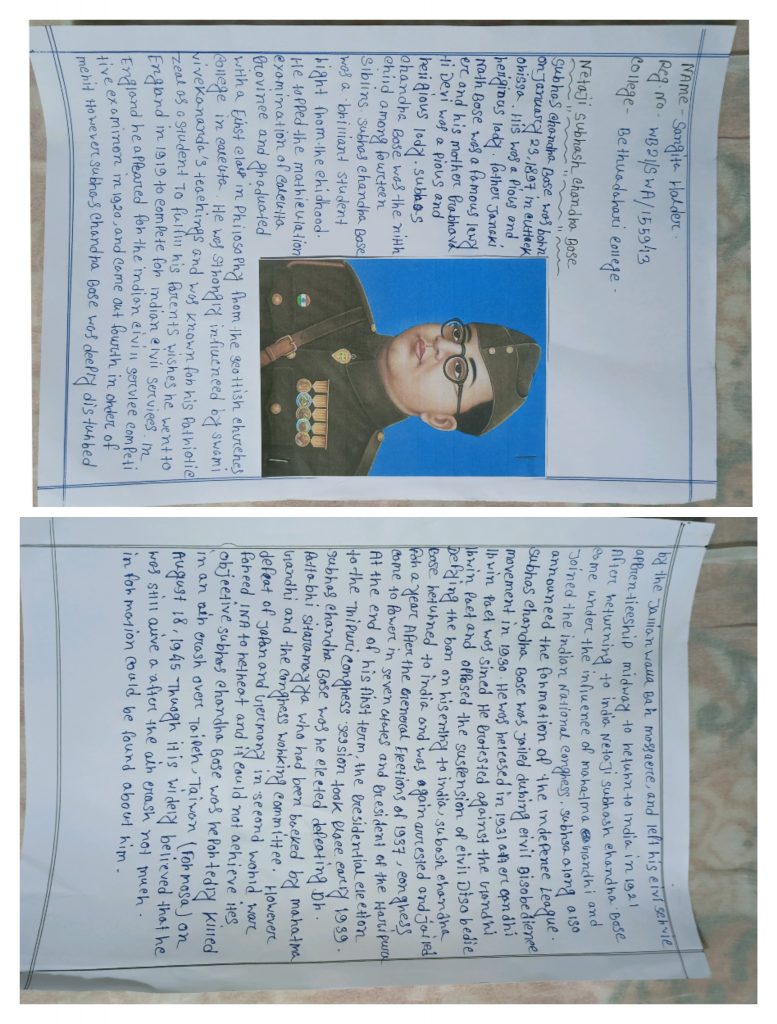 NAme - Sangita Halder.
Reg. No. - WB21/SWA/155943
college - Bethuadahari college.
Netaji Subhash chandra Bose
Subhas chandra Bose was born
on January 23, 1897 in cuttack
orissa. His was a Pious and
religious lady. father Janaki
Nath Bose was a famous lawy
er and his mother Prabhava
ti Devi was a pious and
religious lady. subhas
chandra Bose was the ninth
child among fourteen
Siblins subhas chandra Bose
was a brilliant student
right from the chidhood.
He topped the mathiculation
examination of calcutta
Province and graduated
with a First class in Philosophy from the scottish churches
college in calcuta. He was strongly influenced by swami
vivekananda's teachings and was known for his Patriotic
zeal as a student To fulfil his Parents wishes he went to
England in 1919 to compete for indian civil services. in
England he appeared for the indian civil service competi
tive examinam in 1920, and came out fourth in order of
merit However subhas chandra Bose was deeply disturbed
by the Jallian walla Bah massacre, and left his civil servie
apprenticeship midway to return to india in 1921
After returning to india Netaji subhash chandra Bose
came under the influence of mahatma Gandhi and
Joined the indian National congress. subhsa along also
announced the formation of the indefence League.
subhas chandra Bose was jailed during civil Disobedience
movement in 1930. He was released in 1931 after Gandhi
Irwin Pact was sined He protested against the Gandhi
Irwin Pact and opposed the suspension of civil Disobedie
Defying the ban on his entry to india, subash chandra
Bose returned to india and was again arrested and jailed
for a year After the General Elections of 1937, congress
come to power in seven states and president of the Haripura
At the end of his first term, the Presidential election
to the Thipuri congress session took place early 1939.
subhas chandra Bose was he elected defeating Dr.
Pattabhi sitaramayya who had been backed by mahatma
Gandhi and the congress wohking committee. However
defeat of Japan and Germany in second world war
forced INA to retreat and it could not achieve its
objective subhas chandra Bose was reportedly killed
in an air crash over Taipeh, Taiwan (Formosa) on
August 18, 1945 Though it is widely believed that he
was still alive a after the air crash not much.
information could be found about him.